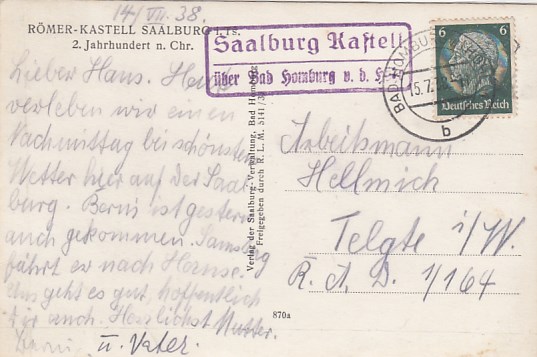 14/VII. 38.
RÖMER-KASTELL SAALBURG i. Ts.
2. Jahrhundert n. Chr.
Lieber Hans. Heute
verleben wir einen
Nachmittag bei schönstem
Wetter hier auf der Saal
burg. Berni ist gestern
auch gekommen. Samstag
fährt er nach Hause.
Uns geht es gut, hoffentlich
Dir auch. Herzlichst Mutter.
Berni u. Vater.
Saalburg Kastell
über Bad Homburg v. d. H.
BAD HOMBURG
15.7.
b
6 6
Deutsches Reich
Verlag der Saalburg-Verwaltung, Bad Homburg
Freigegeben durch R. L. M. 5141/
Arbeitsmann
Hellmich
Telgte i/W.
R. A. D. 1/164
870a